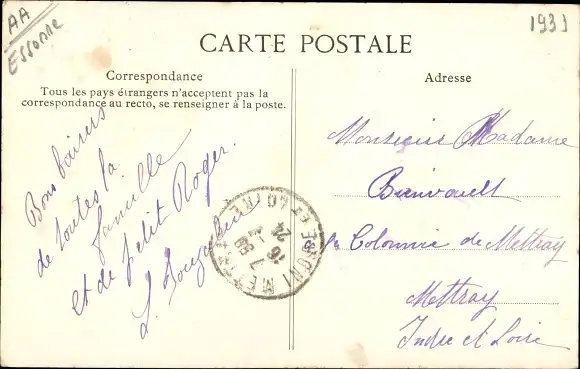 AA
Essonne
1939
CARTE POSTALE
Correspondance
Tous les pays étrangers n'acceptent pas la
correspondance au recto, se renseigner à la poste.
Bons baisers
de toutes la
famille
et de petit Roger.
Adresse
Monsieur Madame
Colonnie de Mettray
Mettray
Indre et Loire
INDRE ET LOIRE
METTRAY
16
7
09